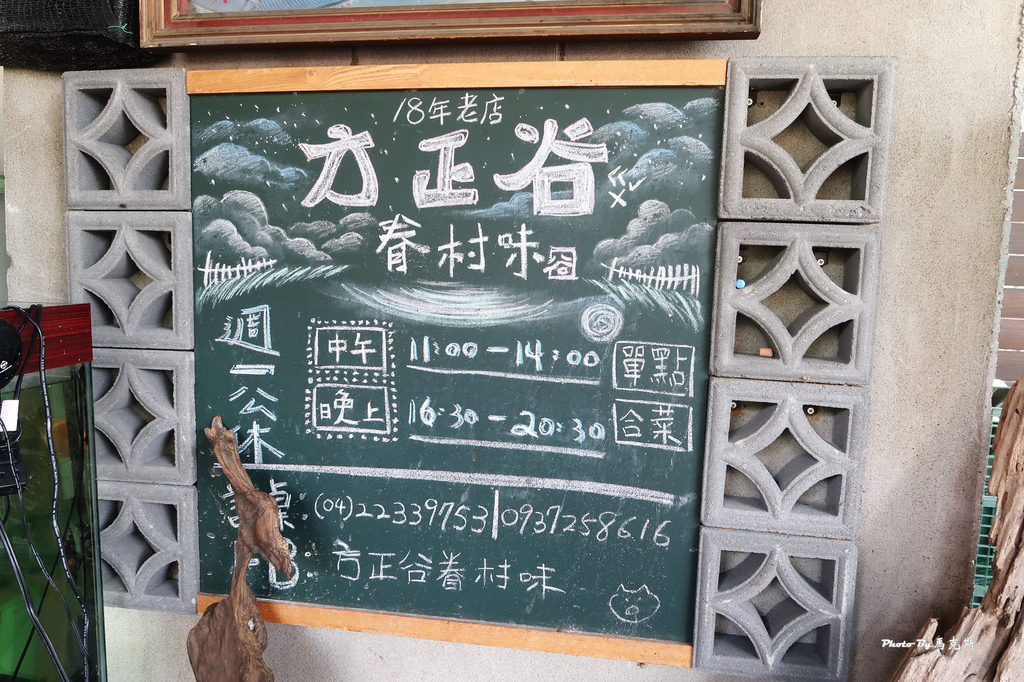 18年老店
方正谷
眷村味
週一公休
中午 11:00-14:00 單點
晚上 16:30-20:30 合菜
訂桌:(04)22339753|0937258616
FB:方正谷眷村味
Photo By 馬克斯